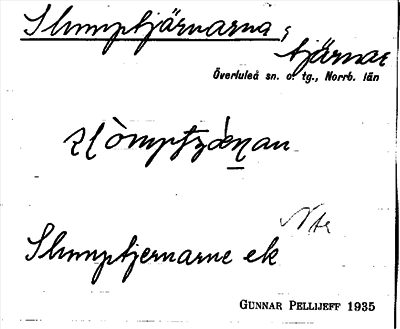 Slumptjärnarna,
tjärnar
Överluleå sn. o. tg., Norrb. län
Slumptjernarne ek
GUNNAR PELLIJEFF 1935